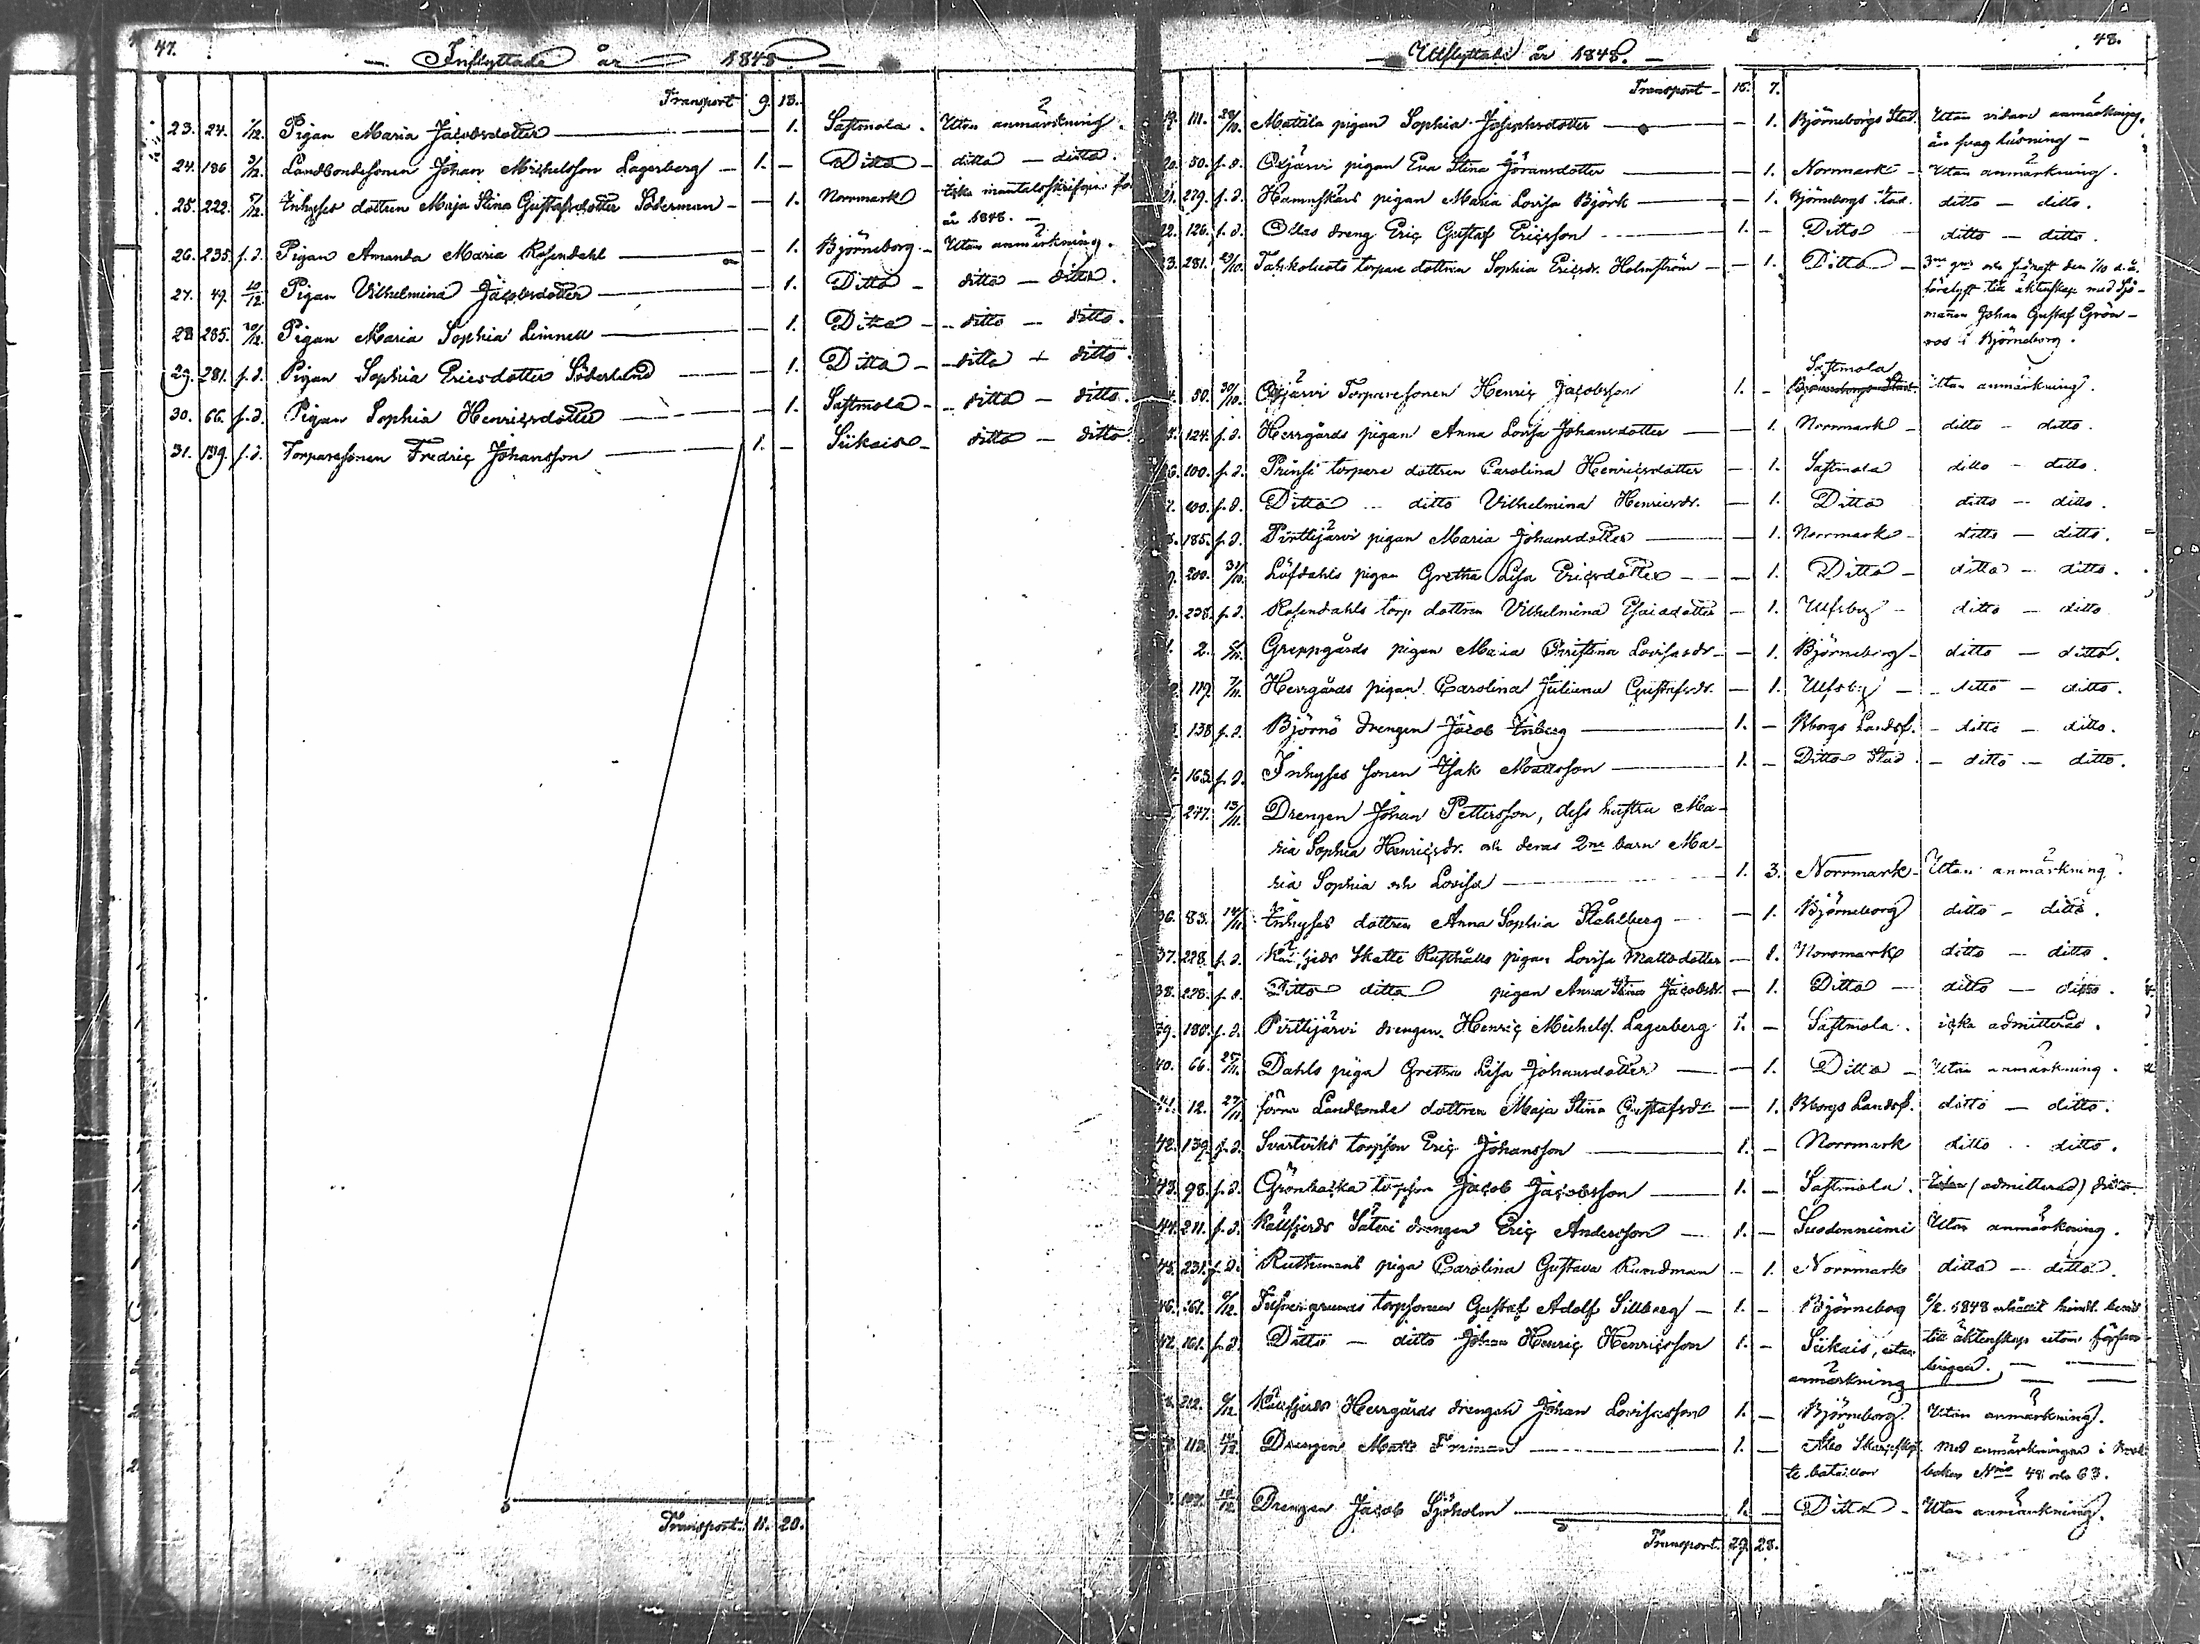 47.
Inflyttade år 1848
Transport 9. 13.
23. 24. Pigan Maria Jacobsdotter — 1. Sastmola. Utan anmärkning.
24. 186 Landbondesonen Johan Michelsson Lagerberg 1. — Ditto ditto — ditto.
25. 222. Inhyses dottren Maja Stina Gustafsdotter Söderman — 1. Norrmark icke mantalsskrifven för
år 1848. —
26. 235. f.d. Pigan Amanda Maria Rosendahl — 1. Björneborg Utan anmärkning.
27. 49. 10/12 Pigan Vilhelmina Jacobsdotter — 1. Ditto ditto — ditto.
28. 285. 20/12 Pigan Maria Sophia Limnell — 1. Ditto ditto — ditto.
29. 281. f.d. Pigan Sophia Ericsdotter Söderlund — 1. Ditto ditto — ditto.
30. 66. f.d. Pigan Sophia Henricsdotter — 1. Sastmola ditto — ditto.
31. 139. f.d. Torparesonen Fredric Johansson 1. — Siikais ditto — ditto
Transport. 11. 20.
48.
Utflyttade år 1848.
Transport 15. 7.
111. Mattila pigan Sophia Josephsdotter — 1. Björneborgs Stad. Utan vidare anmärkning,
än svag läsning —
50. f.d. Otjärvi pigan Eva Stina Göransdotter — 1. Norrmark Utan anmärkning.
279. f.d. Hamnskärs pigan Maria Lovisa Björk — 1. Björneborgs stad. ditto — ditto.
126. f.d. dreng Eric Gustaf Ericsson 1. — Ditto ditto — ditto.
281. torpare dottren Sophia Ericsdr. Holmström — 1. Ditto 3ne den 1/10 d.å.
till äktenskap med Sjö-
mannen Johan Gustaf Grön-
roos i Björneborg.
Sastmola
50. 30/10. Otjärvi Torparesonen Henric Jacobsson 1. — Utan anmärkning.
124. f.d. Herrgårds pigan Anna Lovisa Johansdotter — 1. Norrmark ditto — ditto.
26. 100. f.d. Prinsi torpare dottren Carolina Henricsdotter — 1. Sastmola ditto — ditto.
100. f.d. Ditto ditto Vilhelmina Henricsdr. — 1. Ditto ditto — ditto.
185. f.d. Pirttijärvi pigan Maria Johansdotter — 1. Norrmark ditto — ditto.
200. 31/10. Löfdahls pigan Gretha Lisa Ericsdotter — 1. Ditto ditto — ditto.
238. f.d. Rosendahls torp dottren Vilhelmina Esaiadotter — 1. Ulfsby ditto — ditto
2. Greppgårds pigan Maria Christina Lovisasdr. — 1. Björneborg ditto — ditto.
119. 7/11. Herrgårds pigan Carolina Juliana Gustafsdr. — 1. Ulfsby ditto — ditto.
138 f.d. Björnö drengen Jacob Enberg 1. — Bborgs Landsf. ditto — ditto.
163. f.d. Inhyses sonen Isak Mattsson 1. — Ditto Stad ditto — ditto.
247. 13/11. Drengen Johan Pettersson, dess hustru Ma-
ria Sophia Henricsdr. och deras 2ne barn Ma-
ria Sophia och Lovisa 1. 3. Norrmark Utan anmärkning.
36. 83. 14/11. Inhyses dottren Anna Sophia Ståhlberg — 1. Björneborg ditto — ditto.
37. 228. f.d. Skatte Rusthålls pigan Lovisa Mattsdotter — 1. Norrmark ditto — ditto.
38. 228. f.d. Ditto ditto pigan Anna Stina Jacobsdr. — 1. Ditto ditto — ditto.
39. 180. f.d. Pirttijärvi drengen Henric Michelss. Lagerberg 1. — Sastmola. icke admitterad.
40. 66. 25/11. Dahls piga Gretha Lisa Johansdotter — 1. Ditto Utan anmärkning.
41. 12. 27/11 förra Landbonde dottren Maja Stina Gustafsdr. — 1. Bborgs Landsf. ditto — ditto.
42. 139. f.d. Svartviks torpson Eric Johansson 1. — Norrmark ditto ditto.
43. 98. f.d. Grönbacka torpson Jacob Jacobsson 1. — Sastmola. (admitterad)
44. 211. f.d. Källfjerds Säteri drengen Eric Andersson 1. — Suodenniemi Utan anmärkning.
45. 231. f.d. piga Carolina Gustava Rundman — 1. Norrmark ditto — ditto.
46. 161. torpsonen Gustaf Adolf Sillberg 1. — Björneborg 1848
47. 161. f.d. Ditto — ditto Johan Henric Henricsson 1. — Siikais, utan till äktenskap utom försam-
anmärkning lingen.
212. Källfjerds Herrgårds drengen Johan Lovisasson 1. — Björneborg. Utan anmärkning.
Drengen Matts Friman 1. — Åbo Skarpskyt- Med anmärkningar i
te bataillon boken Nris 48 och 63.
Drengen Jacob Sjöholm 1. — Ditto Utan anmärkning.
Transport. 29. 28.